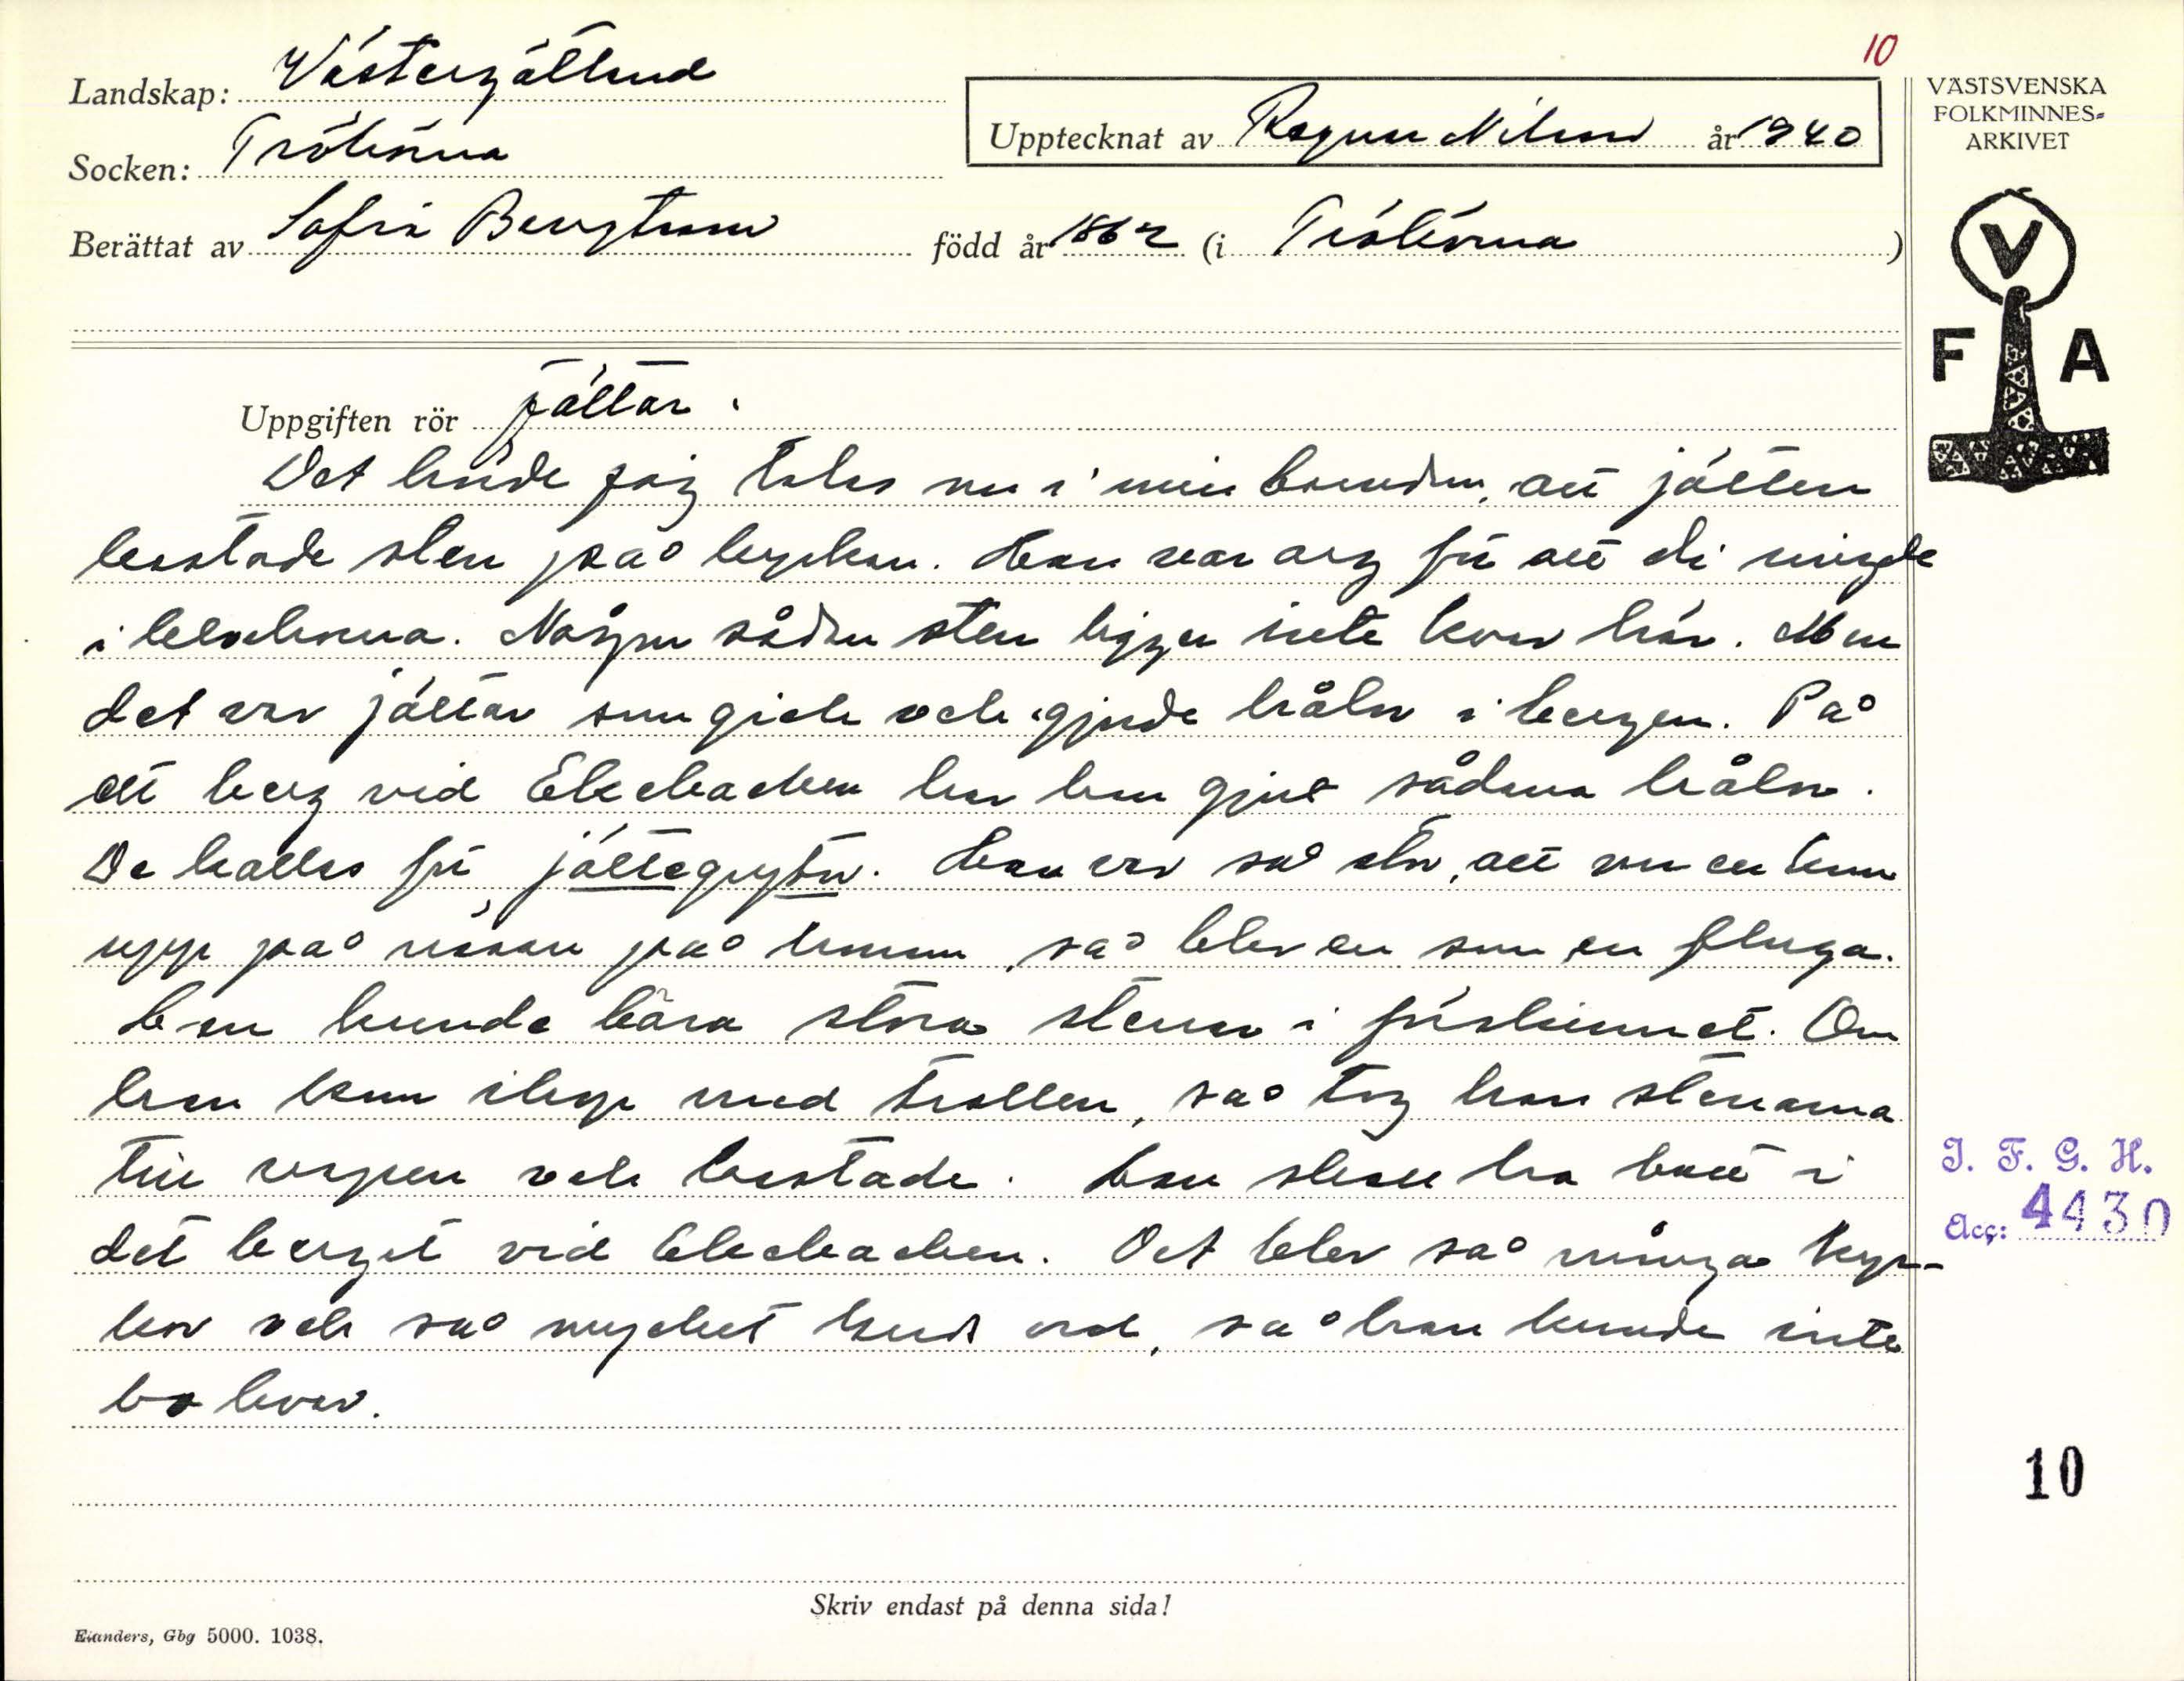 10
Landskap: Västergötland
Socken: Trökörna
Upptecknat av Ragnar Nilsson år 1940
Berättat av Sofia Bergstrom född år 1862 (i Trökörna)
VÄSTSVENSKA
FOLKMINNES-
ARKIVET
V
F A
Uppgiften rör Jättar.
Det hörde jag talas om i min barndom, att jätten
kastade sten på kyrkan. Han var arg för att di ringde
i klockorna. Någon sådan sten ligger inte kvar här. Men
det var jättar som gick och gjorde hålor i bergen. På
ett berg vid Ekebacken har han gjort sådana hålor.
De kallas för jättegrytor. Han var så stor, att om en kom
upp på nåsan på honom, så blev en som en fluga.
Han kunde bära stora stenar i förskinnet. Om
han kom ihop med trollen, så tog han stenarna
till vapen och kastade. Han skall ha bott i
det berget vid Ekebacken. Det blev så många kyr-
kor och så mycket Guds ord, så han kunde inte
bo kvar.
J. F. G. H.
Acc: 4430
10
Skriv endast på denna sida!
Elanders, Gbg 5000. 1038.